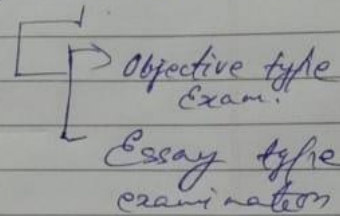 Objective type
Exam.
Essay type
examination